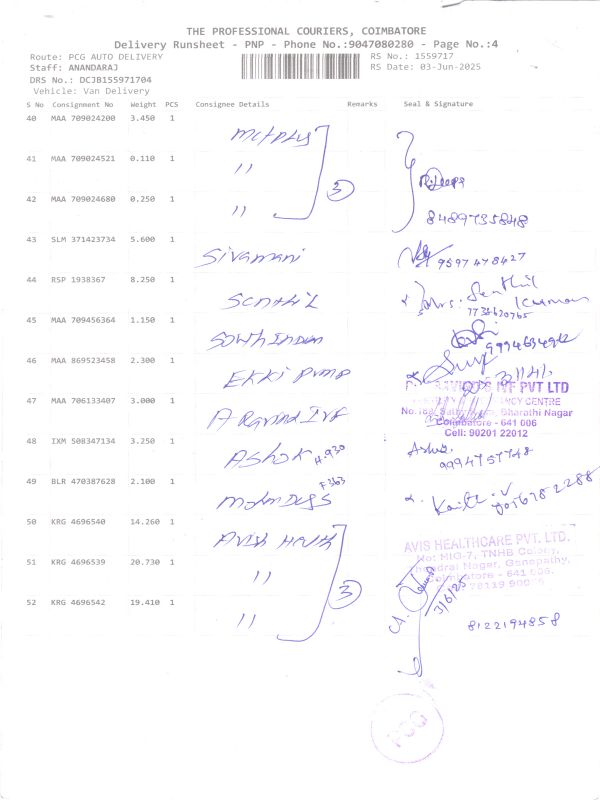 THE PROFESSIONAL COURIERS, COIMBATORE
Delivery Runsheet - PNP - Phone No.:9047080280 - Page No.:4
Route: PCG AUTO DELIVERY RS No.: 1559717
Staff: ANANDARAJ RS Date: 03-Jun-2025
DRS No.: DCJB155971704
Vehicle: Van Delivery
S No Consignment No Weight PCS Consignee Details Remarks Seal & Signature
40 MAA 709024200 3.450 1
41 MAA 709024521 0.110 1 " 3
42 MAA 709024680 0.250 1 " 8489735848
43 SLM 371423734 5.600 1 Sivamani 9597478427
44 RSP 1938367 8.250 1 Senthil Senthil Kumar
45 MAA 709456364 1.150 1 South Indian
46 MAA 869523458 2.300 1 EKKi Pump
IVF PVT LTD
47 MAA 706133407 3.000 1 Aravind IVF
Bharathi Nagar
Coimbatore - 641 006
Cell: 90201 22012
48 IXM 508347134 3.250 1 Ashok H.930 9994757748
49 BLR 470387628 2.100 1 F363
50 KRG 4696540 14.260 1 Avish
AVIS HEALTHCARE PVT. LTD.
No: MIG-7, TNHB Colony,
Nagar, Ganapathy,
Coimbatore - 641 006.
51 KRG 4696539 20.730 1 " 3
3/6/25
52 KRG 4696542 19.410 1 " 8122194858
PCG